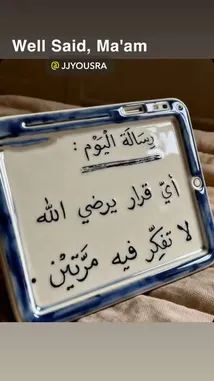 Well Said, Ma'am
@JJYOUSRA
رِسَالَة الْيَوْم :
أيّ قرار يرضي الله
لا تفكِّر فيه مرَّتَيْن .